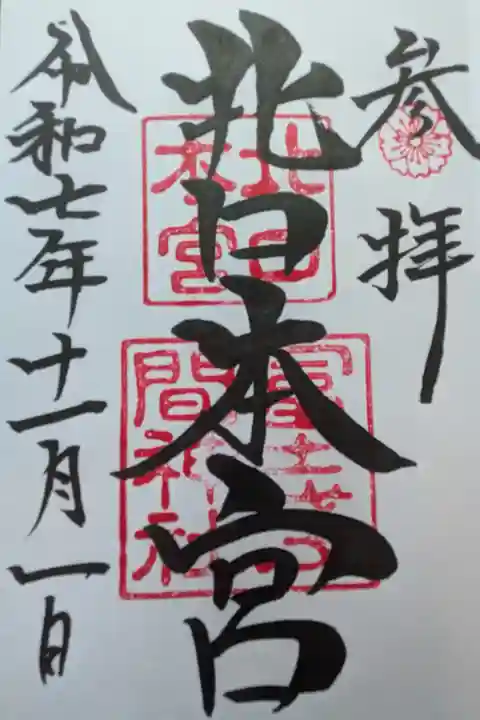 参拝
北口本宮
北口
本宮
冨士浅
間神社
令和七年十一月一日